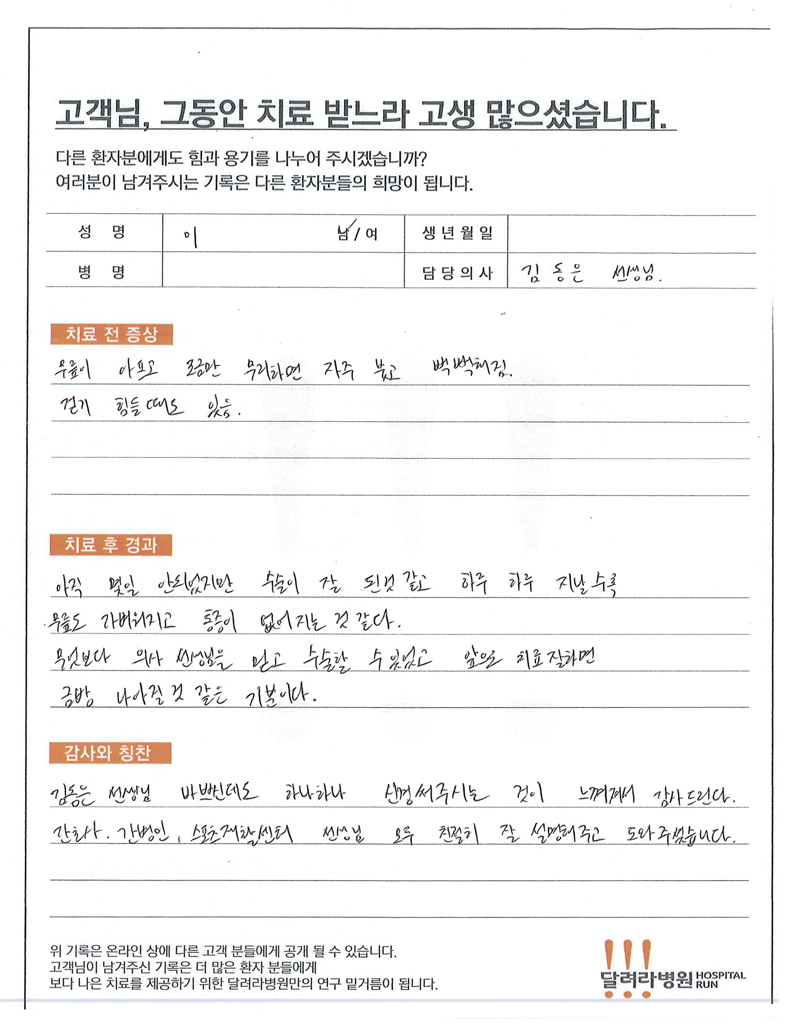 고객님, 그동안 치료 받느라 고생 많으셨습니다.
다른 환자분에게도 힘과 용기를 나누어 주시겠습니까?
여러분이 남겨주시는 기록은 다른 환자분들의 희망이 됩니다.
성 명 이 남/여 생년월일
병 명 담당의사 김동은 선생님.
치료 전 증상
무릎이 아프고 조금만 무리하면 자주 붓고 뻑뻑해짐.
걷기 힘들때도 있음.
치료 후 경과
아직 몇일 안되었지만 수술이 잘 된것 같고 하루 하루 지날수록
무릎도 가벼워지고 통증이 없어지는 것 같다.
무엇보다 의사 선생님을 믿고 수술할 수 있었고 앞으로 치료 잘하면
금방 나아질 것 같은 기분이다.
감사와 칭찬
김동은 선생님 바쁘신데도 하나하나 신경써주시는 것이 느껴져서 감사드린다.
간호사, 간병인, 스포츠재활센터 선생님 모두 친절히 잘 설명해주고 도와주셨습니다.
위 기록은 온라인 상에 다른 고객 분들에게 공개 될 수 있습니다.
고객님이 남겨주신 기록은 더 많은 환자 분들에게
보다 나은 치료를 제공하기 위한 달려라병원만의 연구 밑거름이 됩니다.
!!!
달려라병원 HOSPITAL RUN